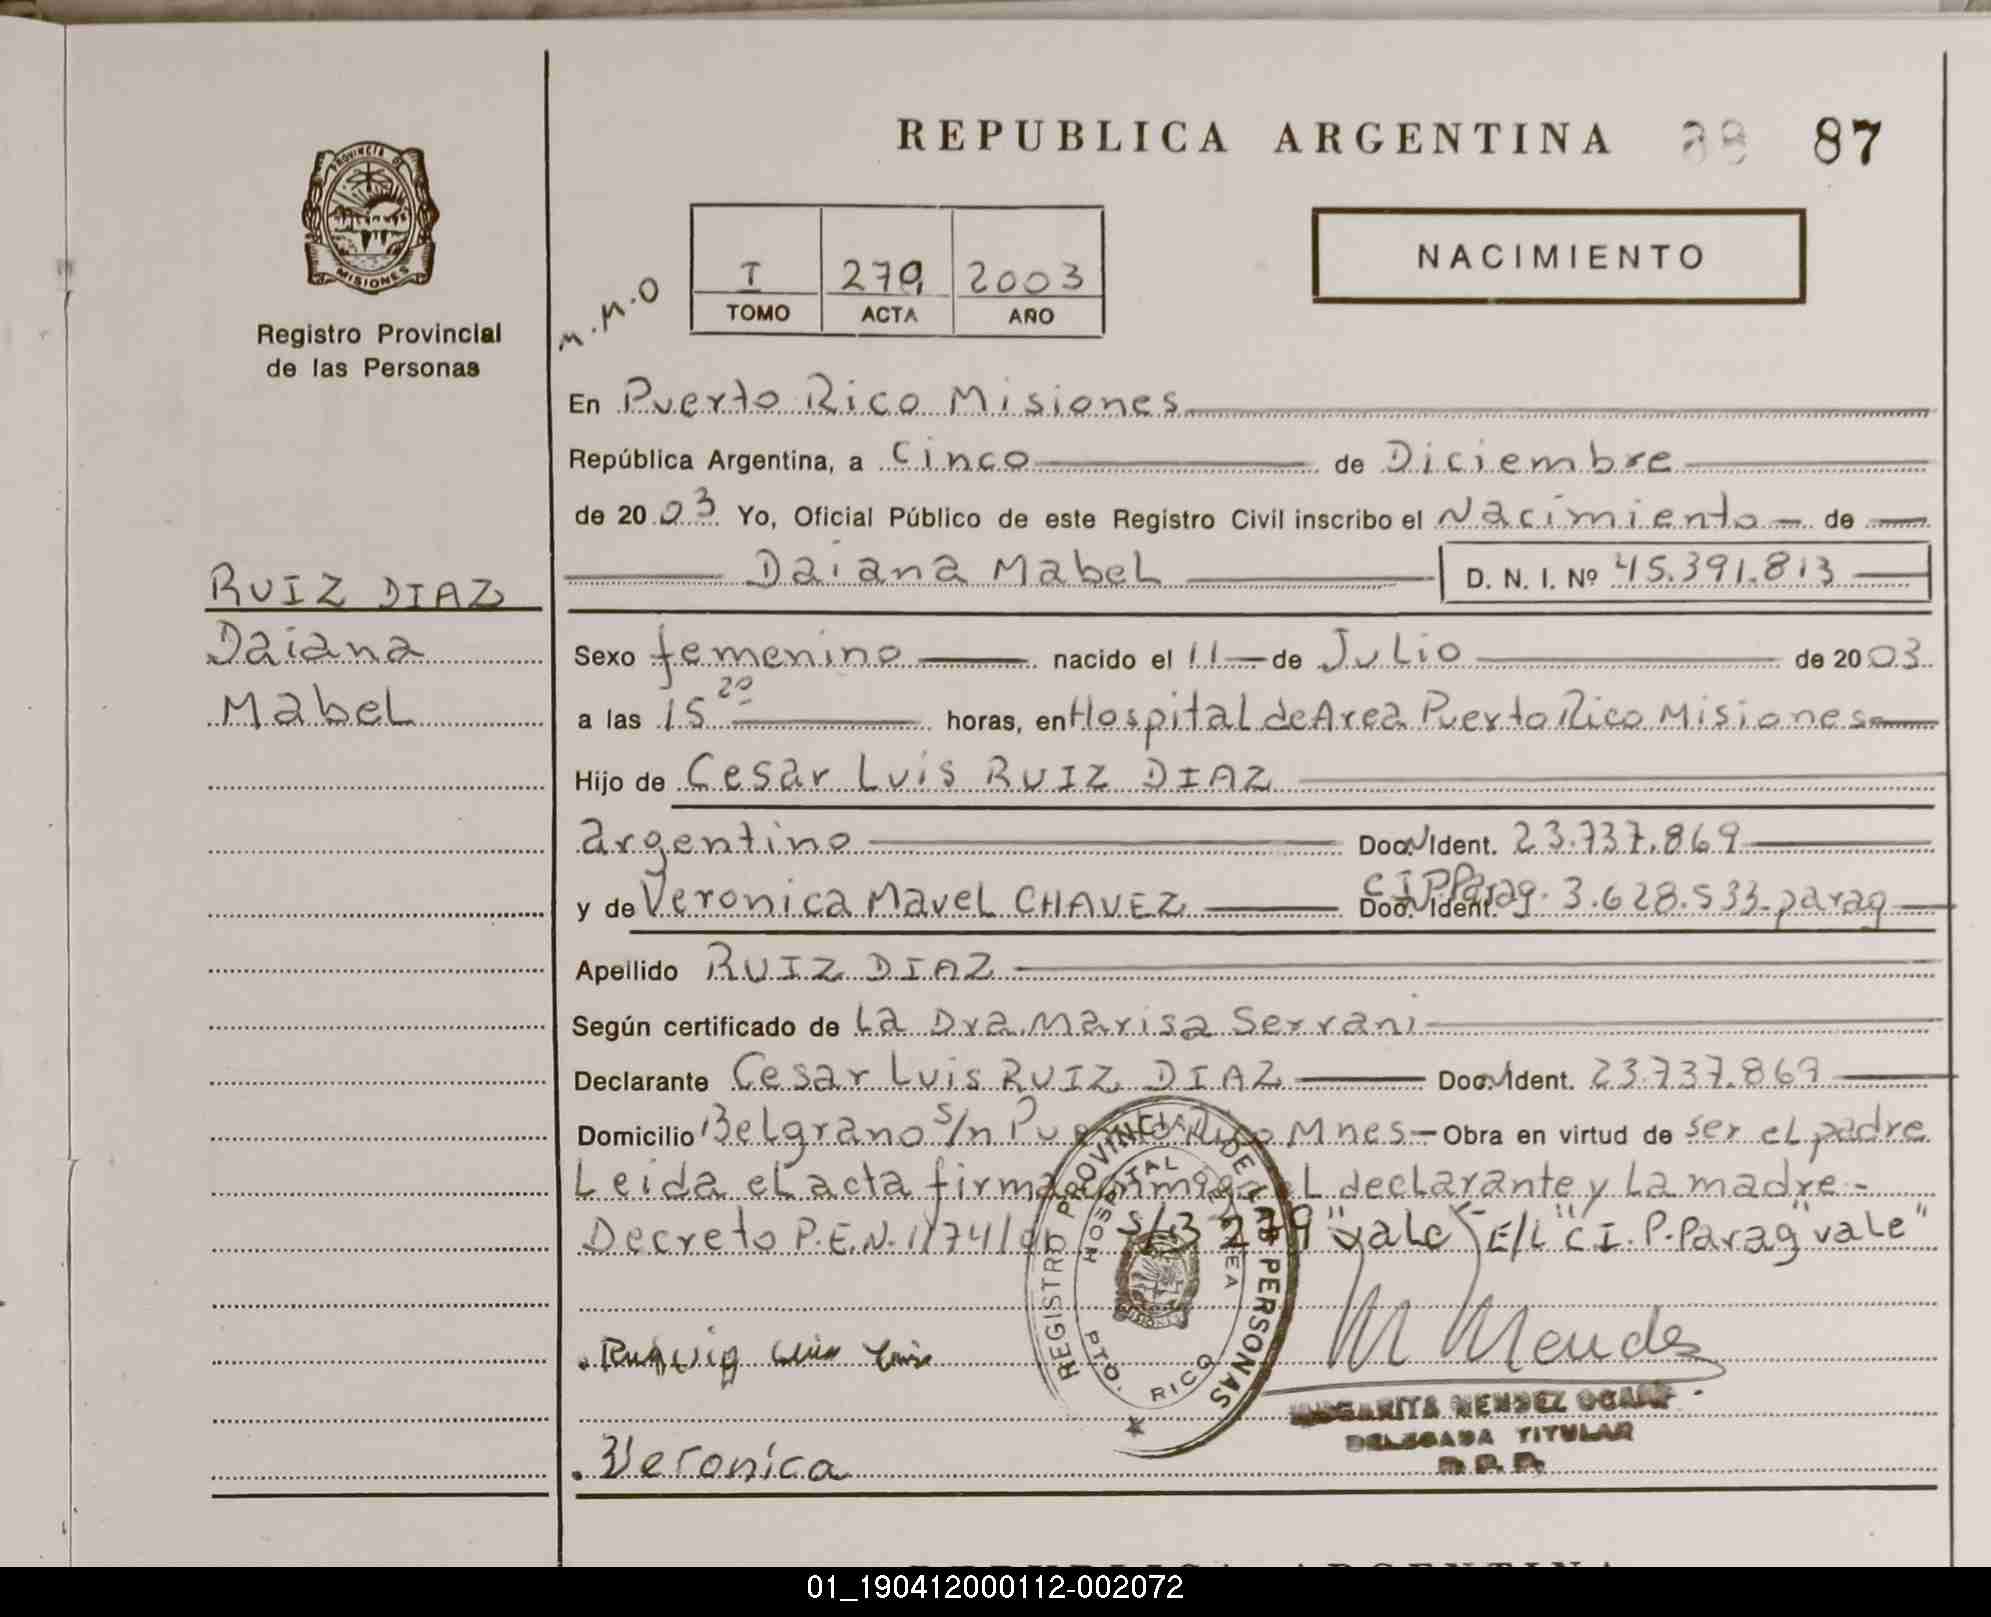 REPUBLICA ARGENTINA 88 87
PROVINCIA DE MISIONES
Registro Provincial
de las Personas
M.M.O
I 279 2003
TOMO ACTA AÑO
NACIMIENTO
En Puerto Rico Misiones
República Argentina, a Cinco de Diciembre
de 2003 Yo, Oficial Público de este Registro Civil inscribo el Nacimiento de
Daiana Mabel D. N. I. Nº 45.391.813
RUIZ DIAZ
Daiana
Mabel
Sexo femenino nacido el 11 de Julio de 2003
a las 15 20 horas, en Hospital de Area Puerto Rico Misiones
Hijo de Cesar Luis RUIZ DIAZ
argentino Doc. Ident. 23.737.869
y de Veronica Mavel CHAVEZ Doc. Ident. C I P.Parag. 3.628.533 parag
Apellido RUIZ DIAZ
Según certificado de La Dra. Marisa Serrani
Declarante Cesar Luis RUIZ DIAZ Doc. Ident. 23.737.869
Domicilio Belgrano s/n Puerto Rico Mnes - Obra en virtud de ser el padre
Leida el acta firma conmigo el declarante y La madre -
Decreto P.E.N. 1174/00 S/B 279 "vale" E/L "C I. P. Parag" "vale"
REGISTRO PROVINCIAL DE LAS PERSONAS
HOSPITAL DE AREA
PTO. RICO
M Mendez
MARGARITA MENDEZ
DELEGADA TITULAR
R. P. P.
Veronica
REPUBLICA ARGENTINA
01_190412000112-002072